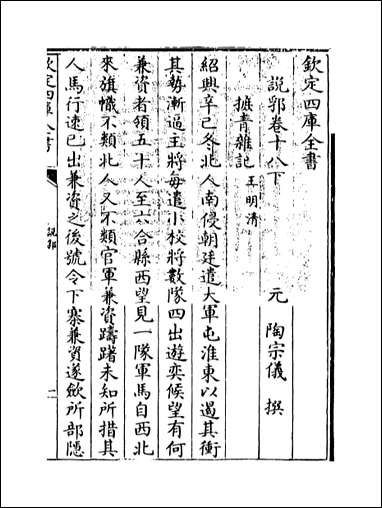 欽定四庫全書
說郛卷十八下
元 陶宗儀 撰
摭青雜記 王明清
紹興辛巳冬北人南侵朝廷遣大軍屯淮東以遏其衝
其勢漸逼主將每遣小校將數隊四出遊奕候望有何
兼資者領五十人至六合縣西望見一隊軍馬自西北
來旗幟不類北人又不類官軍兼資躊躇未知所措其
人馬行速已出兼資之後號令下寨兼資遂斂所部隱
欽定四庫全書
說郛
二